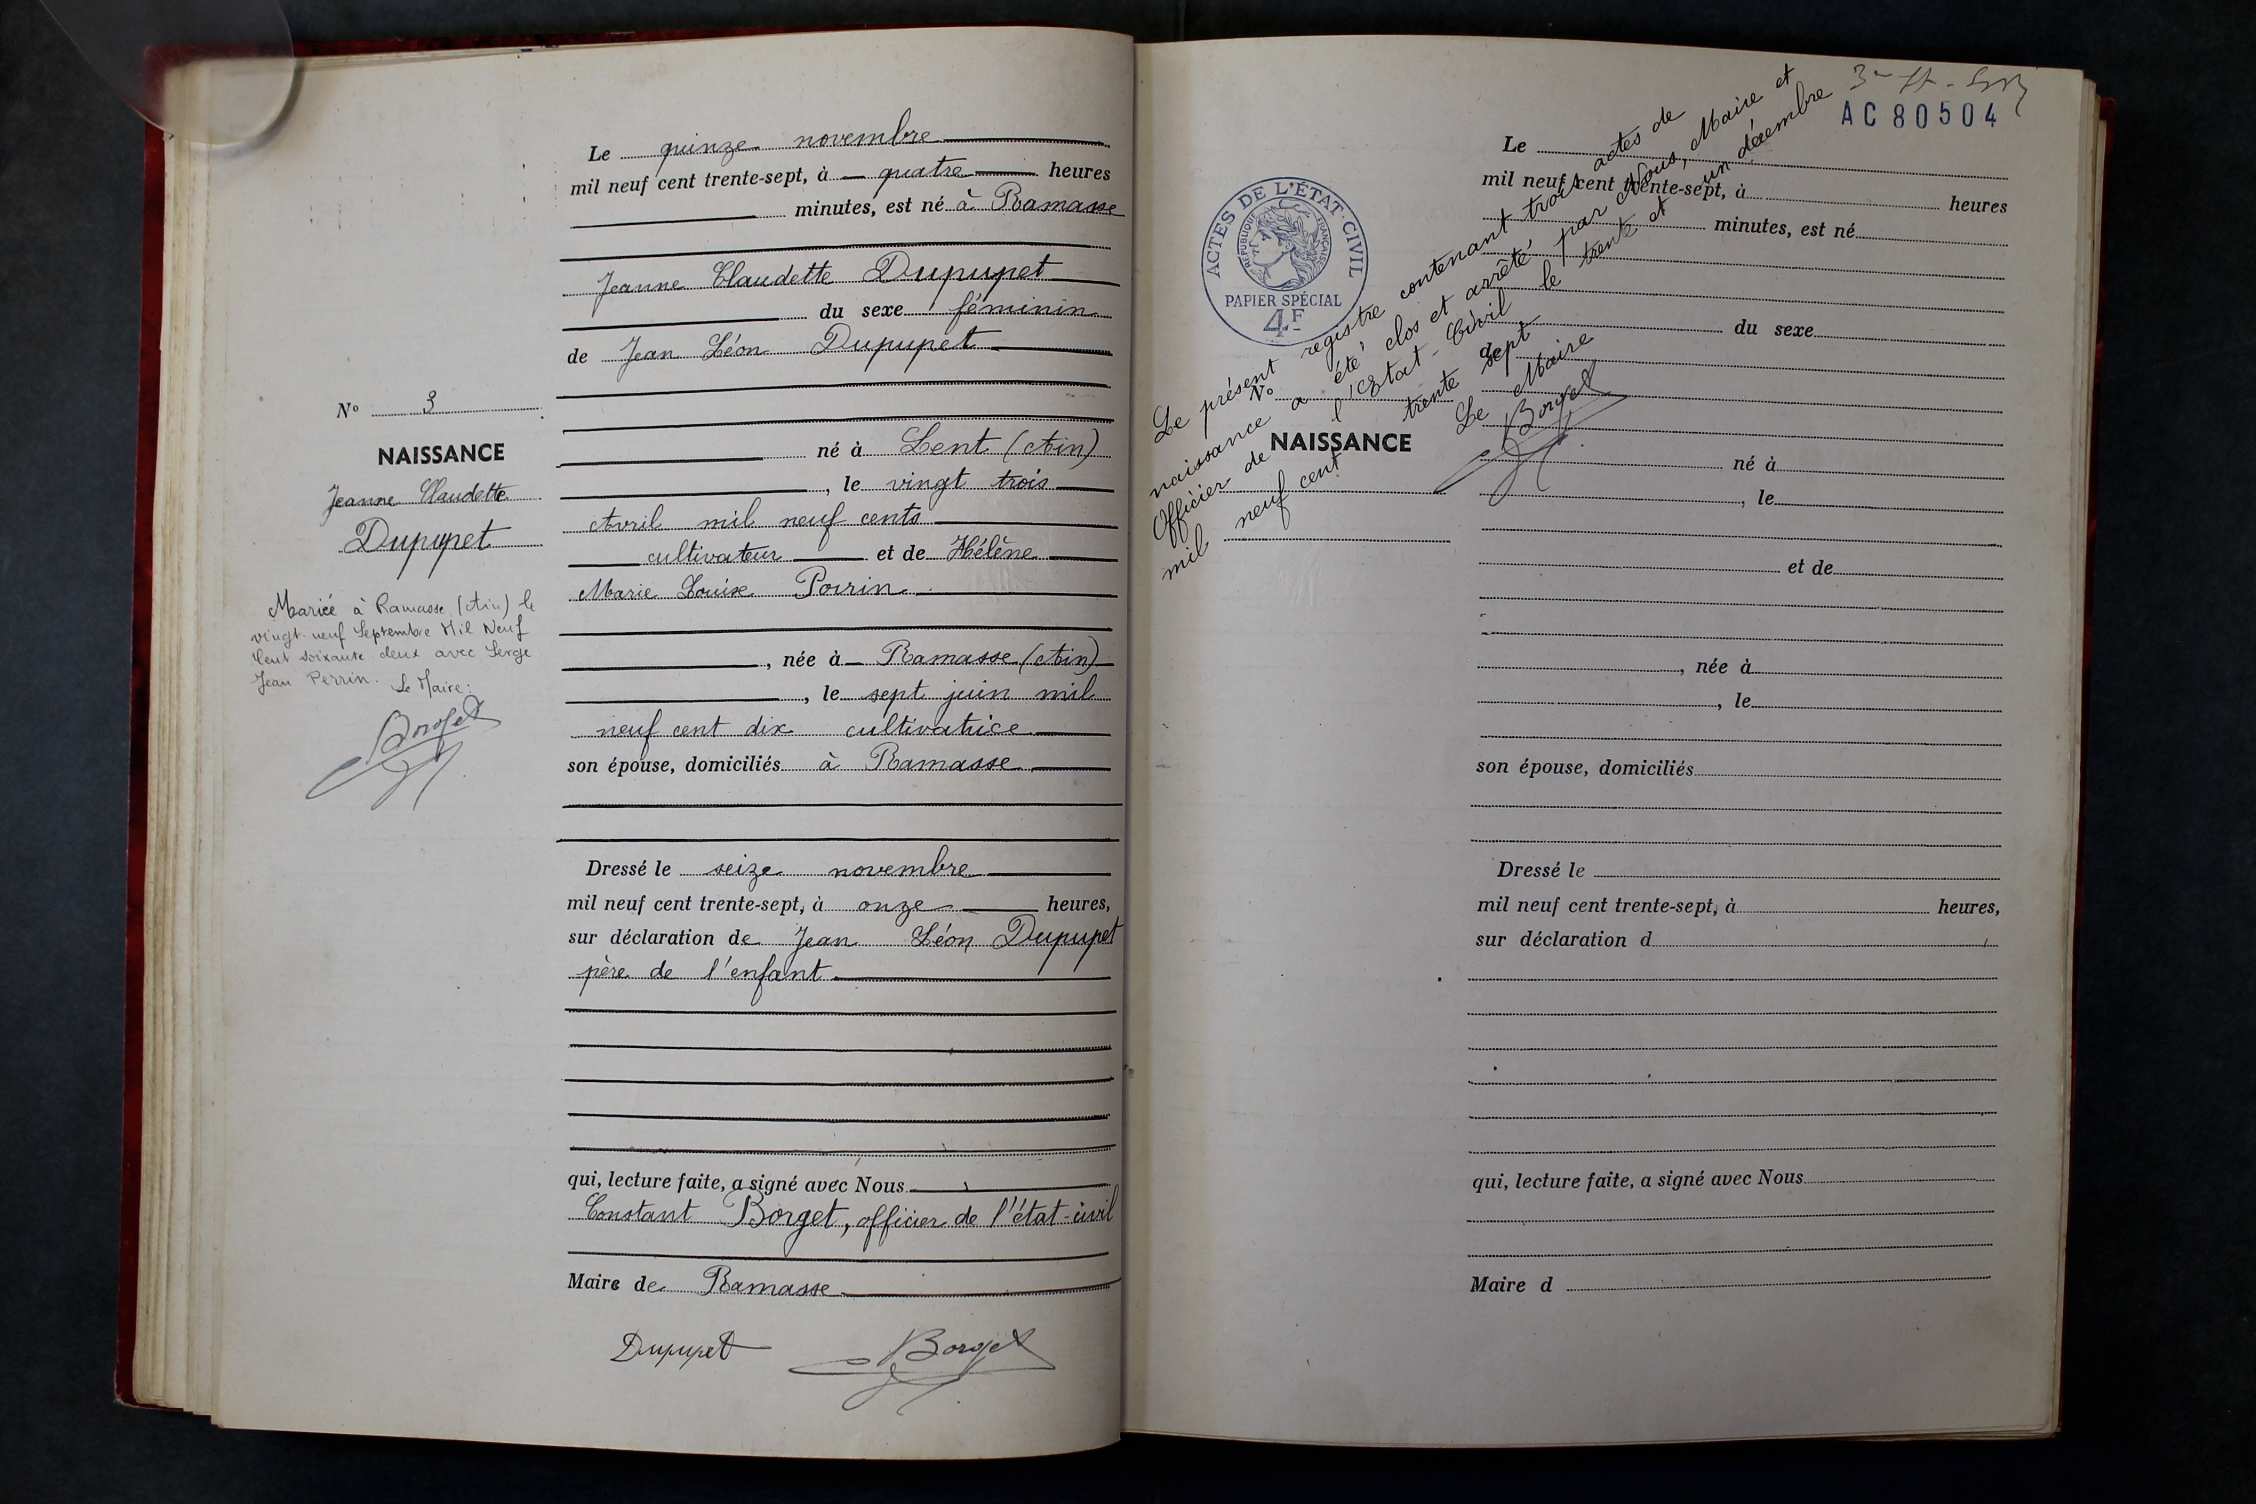 Le quinze novembre
mil neuf cent trente-sept, à quatre heures
minutes, est né à Ramasse
Jeanne Claudette Dupupet
du sexe féminin
de Jean Léon Dupupet
né à Lent (Ain)
, le vingt trois
Avril mil neuf cents
cultivateur et de Hélène
Marie Louise Poirin
, née à Ramasse (Ain)
, le sept juin mil
neuf cent dix cultivatrice
son épouse, domiciliés à Ramasse
Dressé le seize novembre
mil neuf cent trente-sept, à onze heures,
sur déclaration de Jean Léon Dupupet
père de l'enfant
qui, lecture faite, a signé avec Nous
Constant Borget, officier de l'état-civil
Maire de Ramasse
Dupupet Borget
No 3
NAISSANCE
Jeanne Claudette
Dupupet
Mariée à Ramasse (Ain) le
vingt-neuf Septembre Mil Neuf
Cent soixante deux avec Serge
Jean Perrin. Le Maire:
Borget
AC 80504
ACTES DE L'ÉTAT-CIVIL
RÉPUBLIQUE FRANÇAISE
PAPIER SPÉCIAL
4F
Le présent registre contenant trois actes de
naissance a été clos et arrêté par Nous, Maire et
Officier de l'Etat-Civil le trente et un décembre
mil neuf cent trente sept
Le Maire
Borget
No
NAISSANCE
Le
mil neuf cent trente-sept, à heures
minutes, est né
du sexe
de
né à
, le
et de
, née à
, le
son épouse, domiciliés
Dressé le
mil neuf cent trente-sept, à heures,
sur déclaration d
qui, lecture faite, a signé avec Nous
Maire d